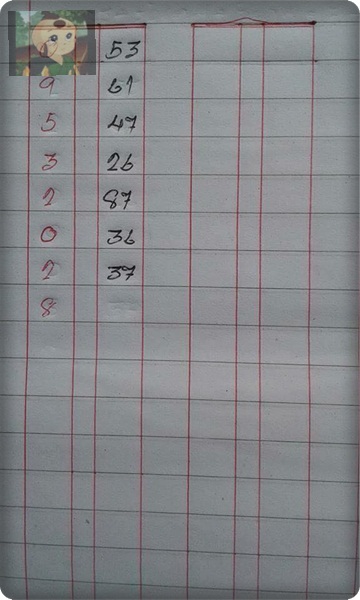 53
9 61
5 47
3 26
2 87
0 36
2 37
8